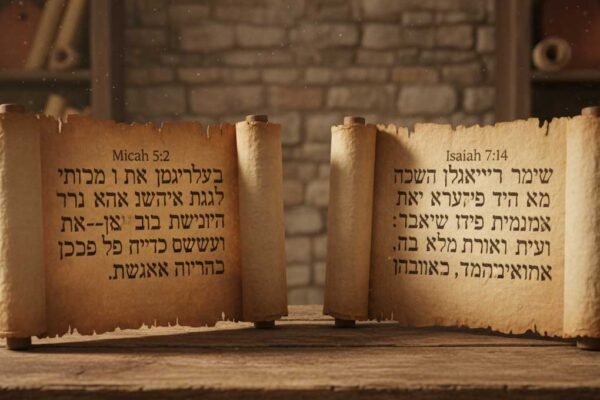 Micah 5:2
בעלריגמן את ו מכותי
לנגת איהשנ אהא נרר
היונישת בוב יאן--את
ועששם כדייה פל פככן
כהריוה אאגשת.
Isaiah 7:14
שימר רייייאגלן השכה
מא היד פיהערא יאת
אמנמית פידו שיאבד:
ועית ואורת מלא בה.
אחואיב:המד, כאוובהן